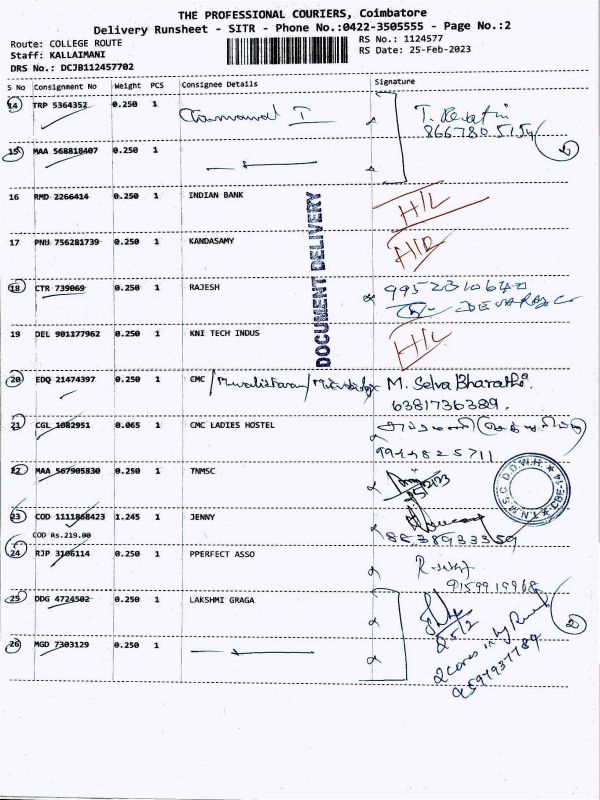 THE PROFESSIONAL COURIERS, Coimbatore
Delivery Runsheet - SITR - Phone No.:0422-3505555 - Page No.:2
Route: COLLEGE ROUTE
RS No.: 1124577
Staff: KALLAIMANI
RS Date: 25-Feb-2023
DRS No.: DCJB112457702
S No Consignment No Weight PCS Consignee Details Signature
14 TRP 5364352 0.250 1
8667805154
15 MAA 568818407 0.250 1
2
16 RMD 2266414 0.250 1 INDIAN BANK H/L
17 PNU 756281739 0.250 1 KANDASAMY
18 CTR 739069 0.250 1 RAJESH
DEVARAJ
19 DEL 901177962 0.250 1 KNI TECH INDUS H/L
DOCUMENT DELIVERY
20 EDQ 21474397 0.250 1 CMC M. Selva Bharathi.
6381736389.
21 CGL 1082951 0.065 1 CMC LADIES HOSTEL
9944825711
22 MAA 567905830 0.250 1 TNMSC
T.N.M.S.C. D.D.W.H. CBE-14
23 COD 1111868423 1.245 1 JENNY
COD Rs.219.00
8838933359
24 RJP 3106114 0.250 1 PPERFECT ASSO
9159919968
25 DDG 4724502 0.250 1 LAKSHMI GRAGA
25/2
2
26 MGD 7303129 0.250 1